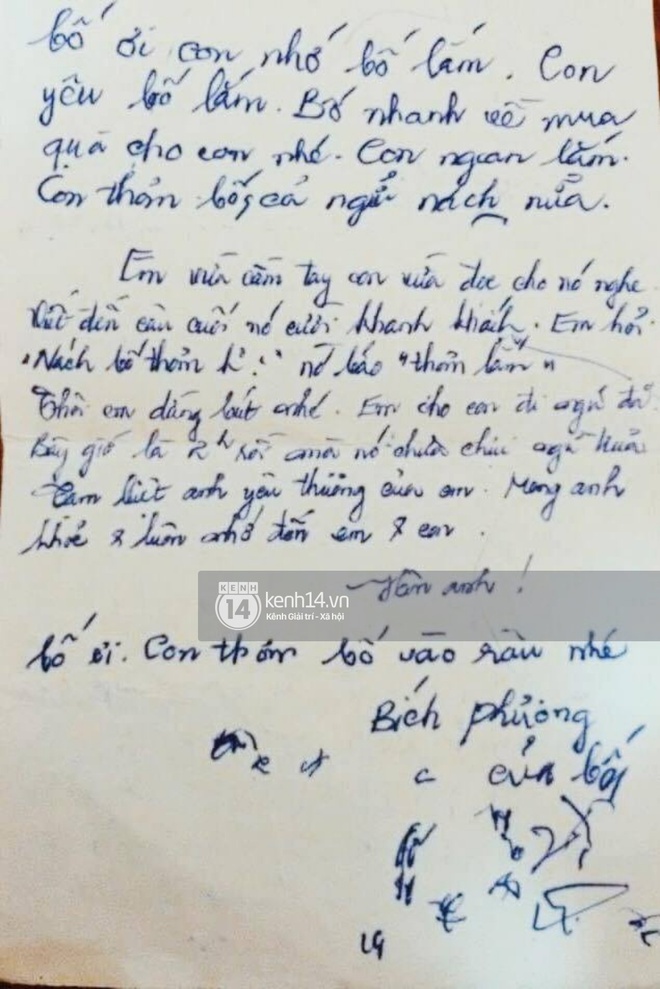 bố ơi con nhớ bố lắm. Con
yêu bố lắm. Bố nhanh về mua
quà cho con nhé. Con ngoan lắm.
Con thơm bố, cả ngửi nách nữa.
Em vừa cầm tay con vừa đọc cho nó nghe
Viết đến câu cuối nó cười khanh khách. Em hỏi
"Nách bố thơm k?" nó bảo "thơm lắm"
Thôi em dừng bút anh nhé. Em cho con đi ngủ đã
Bây giờ là 2h rồi mà nó chưa chịu ngủ trưa
Tạm biệt anh yêu thương của em. Mong anh
khoẻ & luôn nhớ đến em & con.
Hôn anh!
KENH
14
kenh14.vn
Kênh Giải trí - Xã hội
bố ơi. Con thơm bố vào râu nhé
Bích Phương
của bố